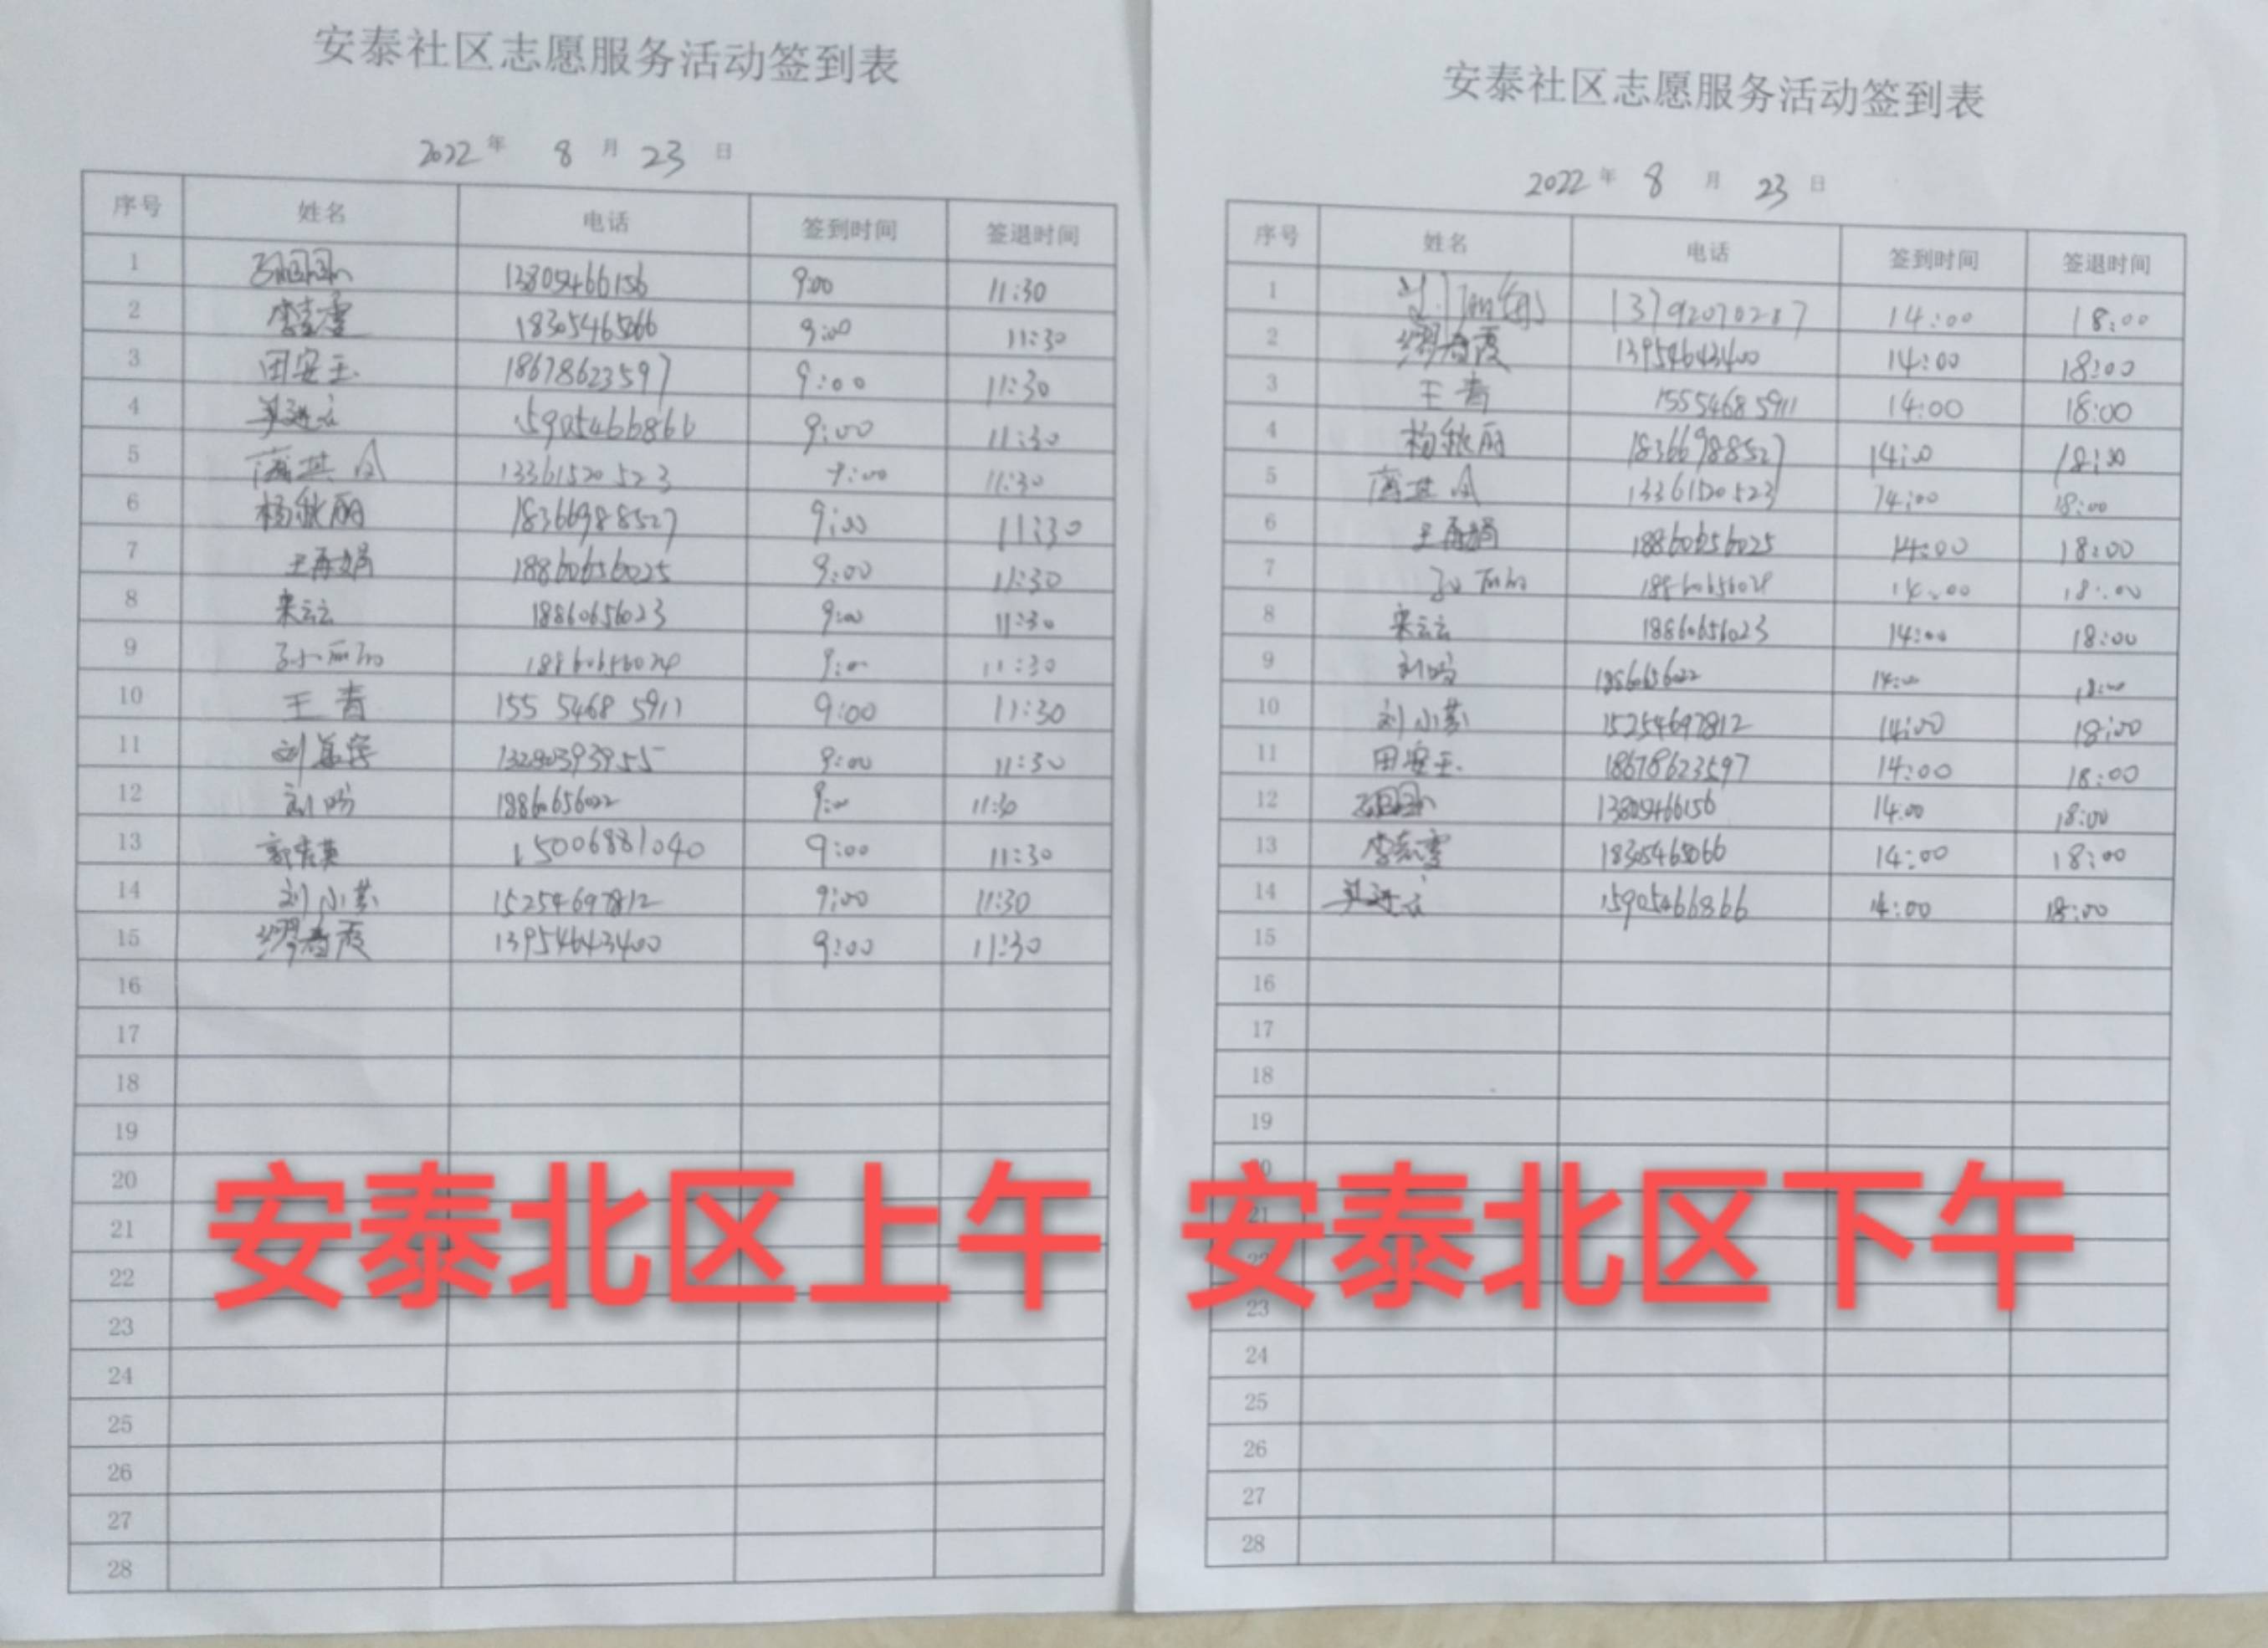 安泰社区志愿服务活动签到表
2022年 8月 23日
序号 姓名 电话 签到时间 签退时间
1 13805466156 9:00 11:30
2 18305465066 9:00 11:30
3 田安玉 18678623597 9:00 11:30
4 15905466866 9:00 11:30
5 13361520523 9:00 11:30
6 杨秋丽 18366988527 9:00 11:30
7 王再娟 18860656025 9:00 11:30
8 宋云云 18860656023 9:00 11:30
9 9:00 11:30
10 王青 155 5468 5911 9:00 11:30
11 9:00 11:30
12 18860656022 9:00 11:30
13 15006881040 9:00 11:30
14 15254697812 9:00 11:30
15 13954643400 9:00 11:30
16
17
18
19
20
21
22
23
24
25
26
27
28
安泰北区上午
安泰社区志愿服务活动签到表
2022年 8月 23日
序号 姓名 电话 签到时间 签退时间
1 13792070287 14:00 18:00
2 13954643400 14:00 18:00
3 王青 15554685911 14:00 18:00
4 杨秋丽 18366988527 14:00 18:00
5 13361520523 14:00 18:00
6 王再娟 18860656025 14:00 18:00
7 14:00 18:00
8 宋云云 18860656023 14:00 18:00
9 14:00 18:00
10 15254697812 14:00 18:00
11 田安玉 18678623597 14:00 18:00
12 13805466156 14:00 18:00
13 18305465066 14:00 18:00
14 15905466866 14:00 18:00
15
16
17
18
19
20
21
22
23
24
25
26
27
28
安泰北区下午